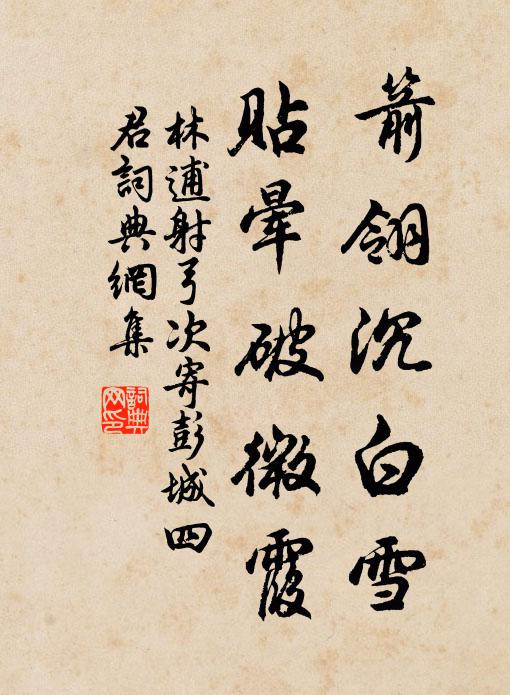 箭翎沉白雪
貼暈破微霞
林逋射弓次寄彭城四
君詞典網集
詞典
网印